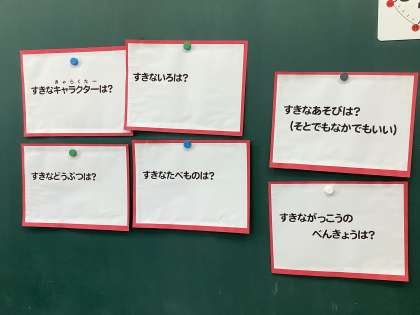 きゃらくたー
すきなキャラクターは?
すきないろは?
すきなどうぶつは?
すきなたべものは?
すきなあそびは?
(そとでもなかでもいい)
すきながっこうの
べんきょうは?